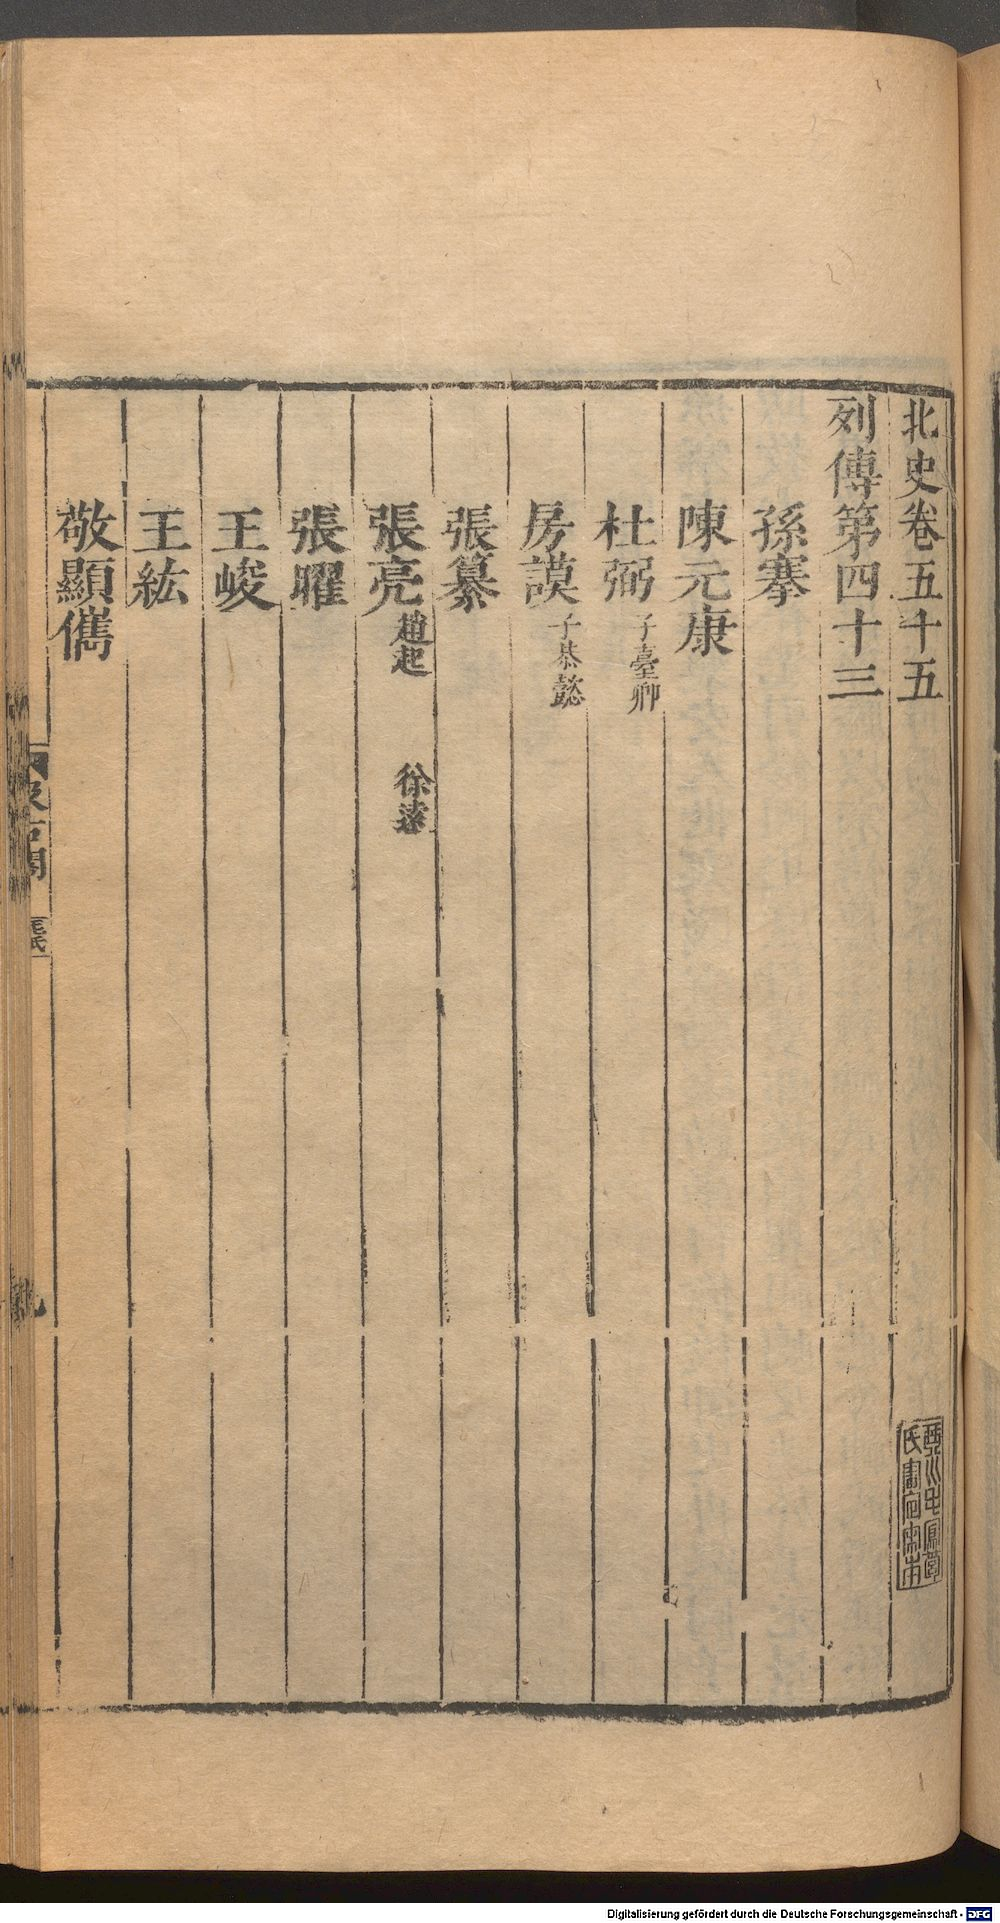 北史卷五十五
列傳第四十三
孫搴
陳元康
杜弼 子臺卿
房謨 子恭懿
張纂
張亮 趙起 徐遠
張曜
王峻
王紘
敬顯儁
Digitalisierung gefördert durch die Deutsche Forschungsgemeinschaft - DFG